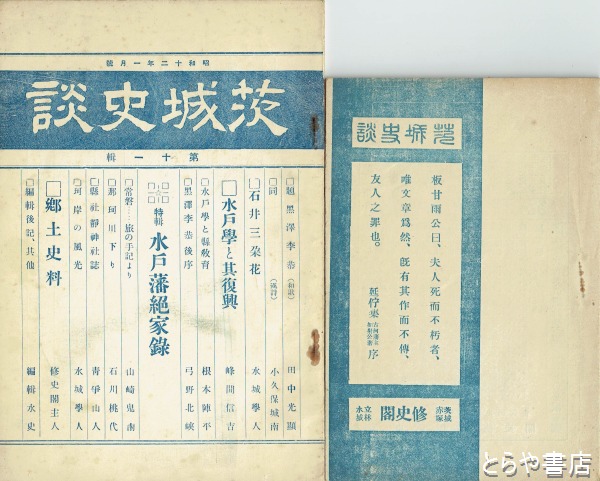 昭和十二年一月號
茨城史談
第十一輯
□題 黒澤李恭（和歌） 田中光顯
□同（漢詩） 小久保城南
□石井三朶花 水城學人
□水戶學と其復興 峰間信吉
□水戶學と縣敎育 根本陣平
□黒澤李恭後序 弓野北峽
特輯 水戶藩絕家錄
□常磐…旅の手記より 山崎鬼南
□那珂川下り 石川桃代
□縣社靜神社誌 靑爭山人
□河岸の風光 水城學人
□鄕土史料 修史閣主人
□編輯後記、其他 編輯永史
茨城史談
板甘雨公曰、夫人死而不朽者、
唯文章爲然、旣有其作而不傳、
友人之罪也。
序
茨城
赤塚
修史閣
立林
永城
とらや書店